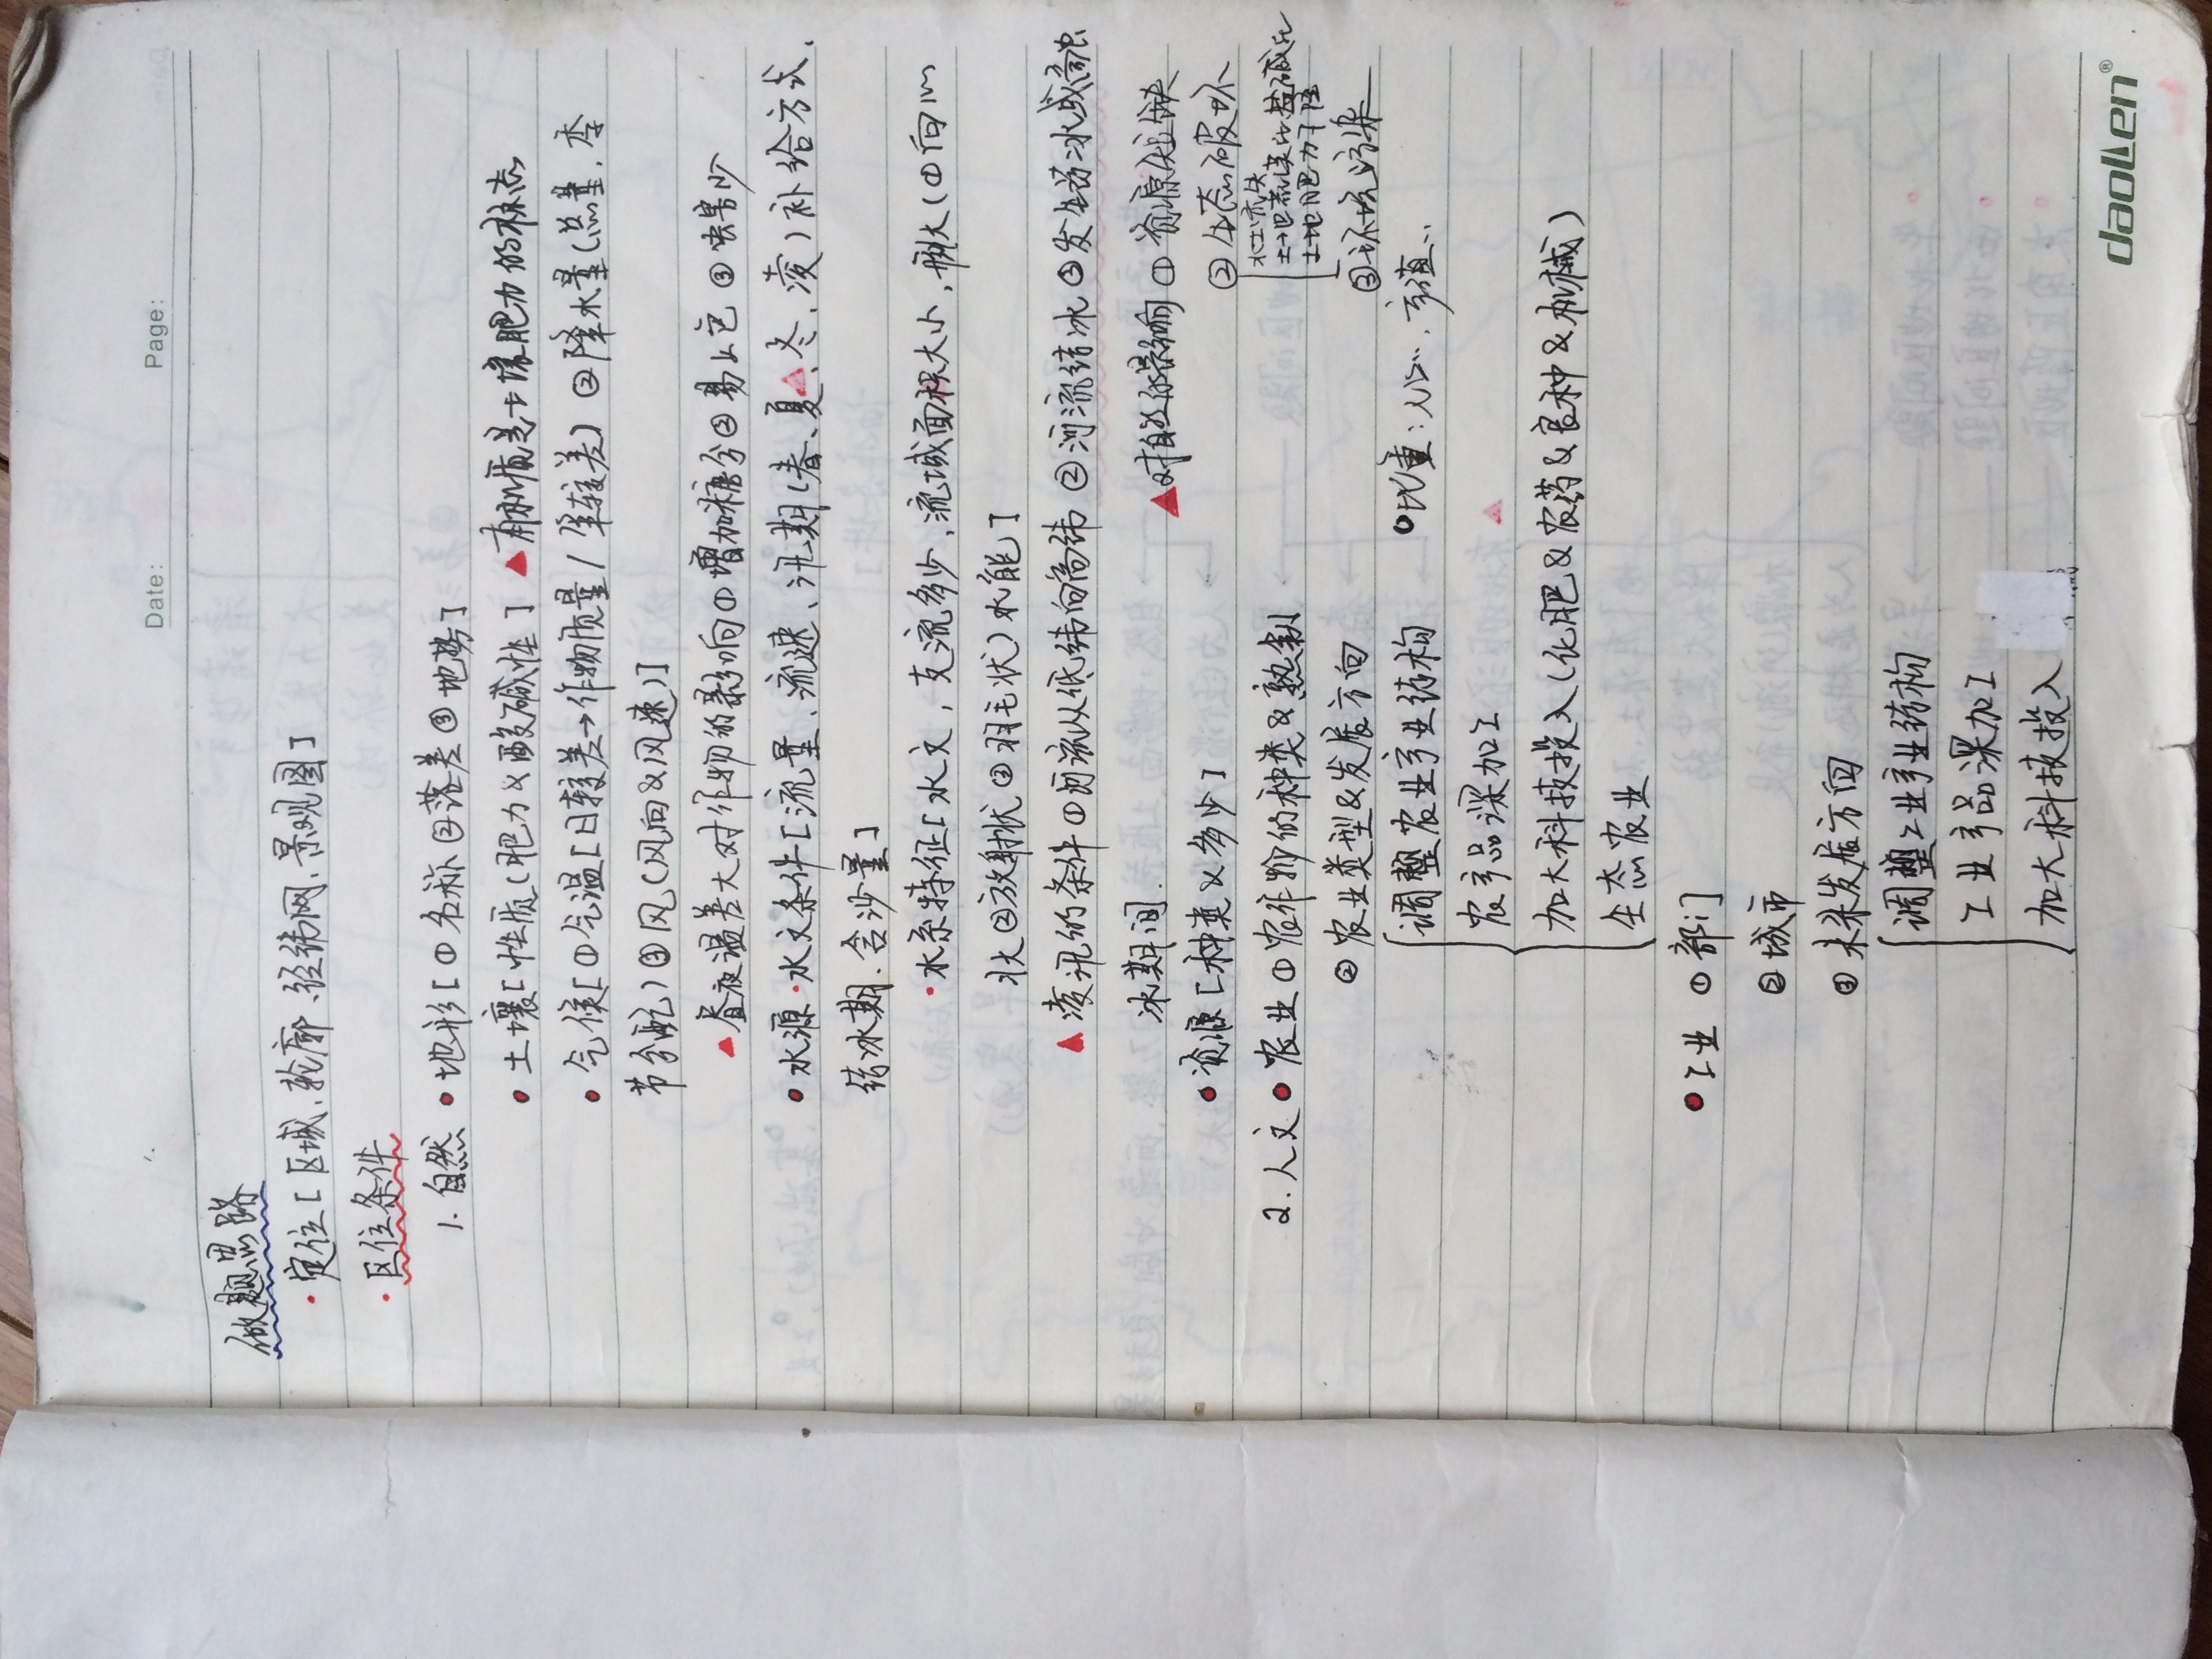 Date: Page:
做题思路
·定位[区域、轮廓、经纬网、景观图]
·区位条件
1. 自然 ●地形[①名称②落差③地势]
●土壤[性质(肥力&酸碱性] ▲有机质是土壤肥力的标志
●气候[①气温[日较差→作物质量/年较差] ②降水量(总量、季
节分配)③风(风向&风速)]
▲昼夜温差大对作物的影响①增加糖分②易上色③虫害少
●水源·水文条件[流量、流速、汛期(春、夏、冬、凌)补给方式、
结冰期、含沙量]
·水系特征[水文,支流多少,流域面积大小,形状(①向心
状②放射状③羽毛状)水能]
▲凌汛的条件①河流从低纬向高纬②河流结冰③发生结冰或融
冰期间.
▲对自然的影响①资源短缺
●资源[种类&多少]
②生态破坏
水土流失
土地荒漠化盐碱化
土地肥力下降
2. 人文●农业①农作物的种类&熟制
②农业类型&发展方向
③环境污染
调整农业产业结构
●比重: 产值..
农产品深加工
加大科技投入(化肥&农药&良种&机械)
生态农业
●工业 ①部门
②城市
③未来发展方向
调整工业产业结构
工业产品深加工
加大科技投入
daolen®